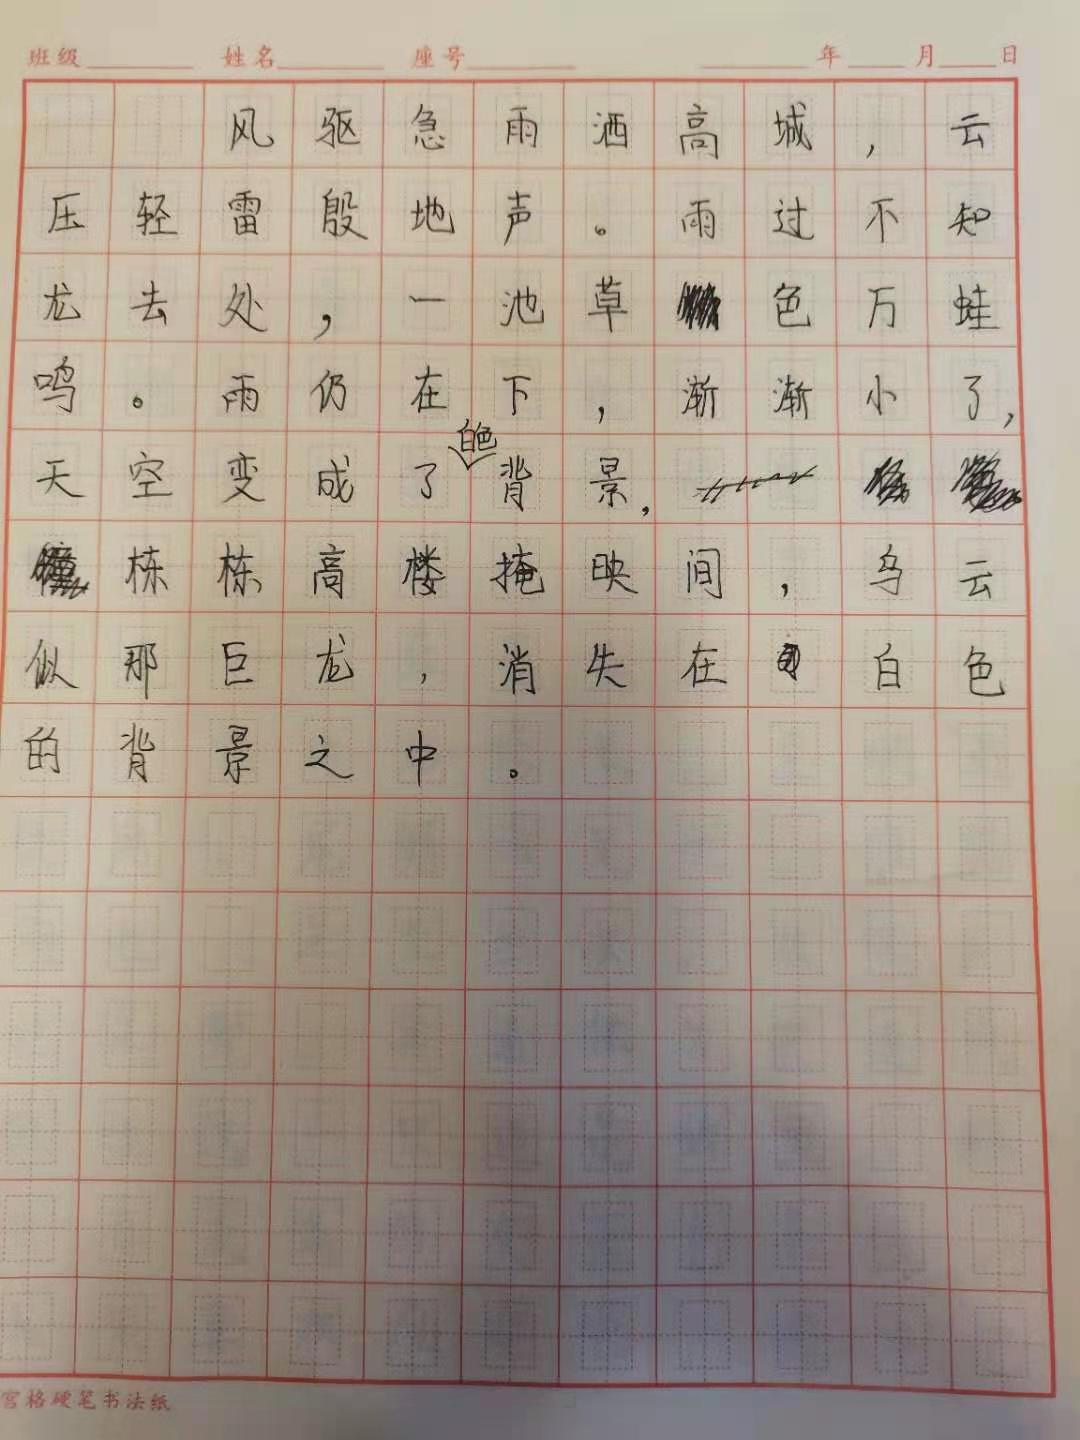 班级 姓名 座号 年 月 日
风驱急雨洒高城，云
压轻雷殷地声。雨过不知
龙去处，一池草色万蛙
鸣。雨仍在下，渐渐小了，
天空变成了白色背景，
栋栋高楼掩映间，乌云
似那巨龙，消失在白色
的背景之中。
宫格硬笔书法纸